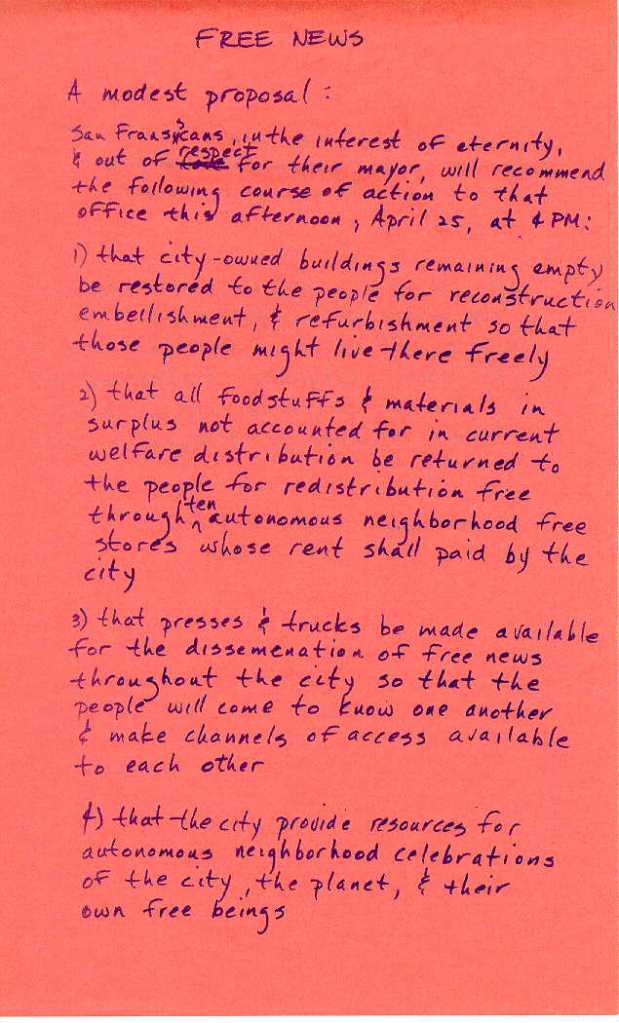 FREE NEWS
A modest proposal :
San Fransiscans, in the interest of eternity,
& out of respect for their mayor, will recommend
the following course of action to that
office this afternoon, April 25, at 4 PM:
1) that city-owned buildings remaining empty
be restored to the people for reconstruction
embellishment, & refurbishment so that
those people might live there freely
2) that all foodstuffs & materials in
surplus not accounted for in current
welfare distribution be returned to
the people for redistribution free
through ten autonomous neighborhood free
stores whose rent shall paid by the
city
3) that presses & trucks be made available
for the dissemenation of free news
throughout the city so that the
people will come to know one another
& make channels of access available
to each other
4) that the city provide resources for
autonomous neighborhood celebrations
of the city, the planet, & their
own free beings